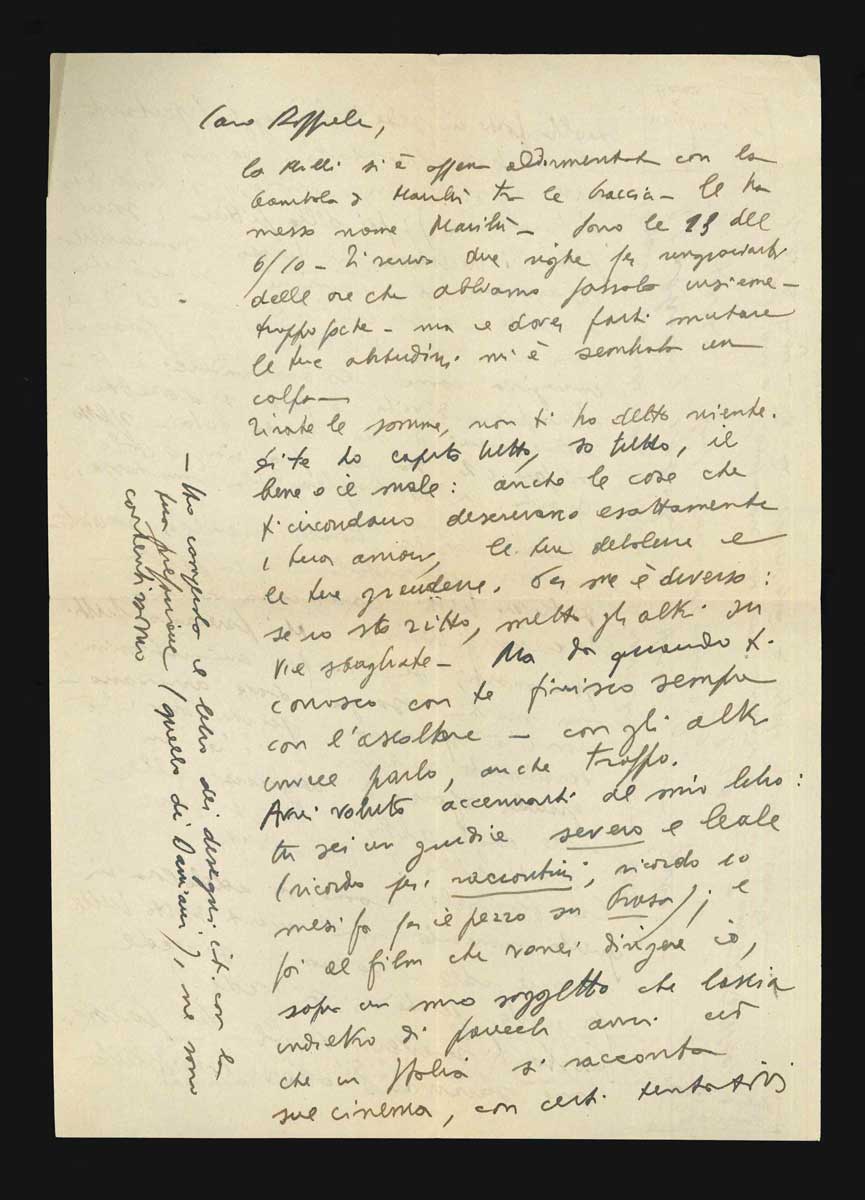 Caro Raffaele,
la Milli si è appena addormentata con la
bambola di Marilù tra le braccia – le ha
messo nome Marilù – Sono le 23 del
6/10 – Ti scrivo due righe per ringraziarti
delle ore che abbiamo passato insieme –
troppo poche – ma il dover farti mutare
le tue abitudini mi è sembrata una
colpa –
Tirate le somme, non ti ho detto niente.
Di te ho capito tutto, so tutto, il
bene o il male: anche le cose che
ti circondano descrivono esattamente
i tuoi amori, le tue debolezze e
le tue grandezze. Per me è diverso:
se io sto zitto, metto gli altri su
vie sbagliate – Ma da quando ti
conosco con te finisco sempre
con l'ascoltare – con gli altri
invece parlo, anche troppo.
Avrei voluto accennarti del mio libro:
tu sei un giudice severo e leale
(ricordo per i raccontini, ricordo 10
mesi fa per il pezzo su); e
poi al film che vorrei dirigere io,
sopra un mio soggetto che lascia
indietro di parecchi anni ciò
che in Italia si racconta
sul cinema, con certi tentativi
– Ho comperato il libro dei disegni con la
tua prefazione (quello di Damiani), ne sono
contentissimo